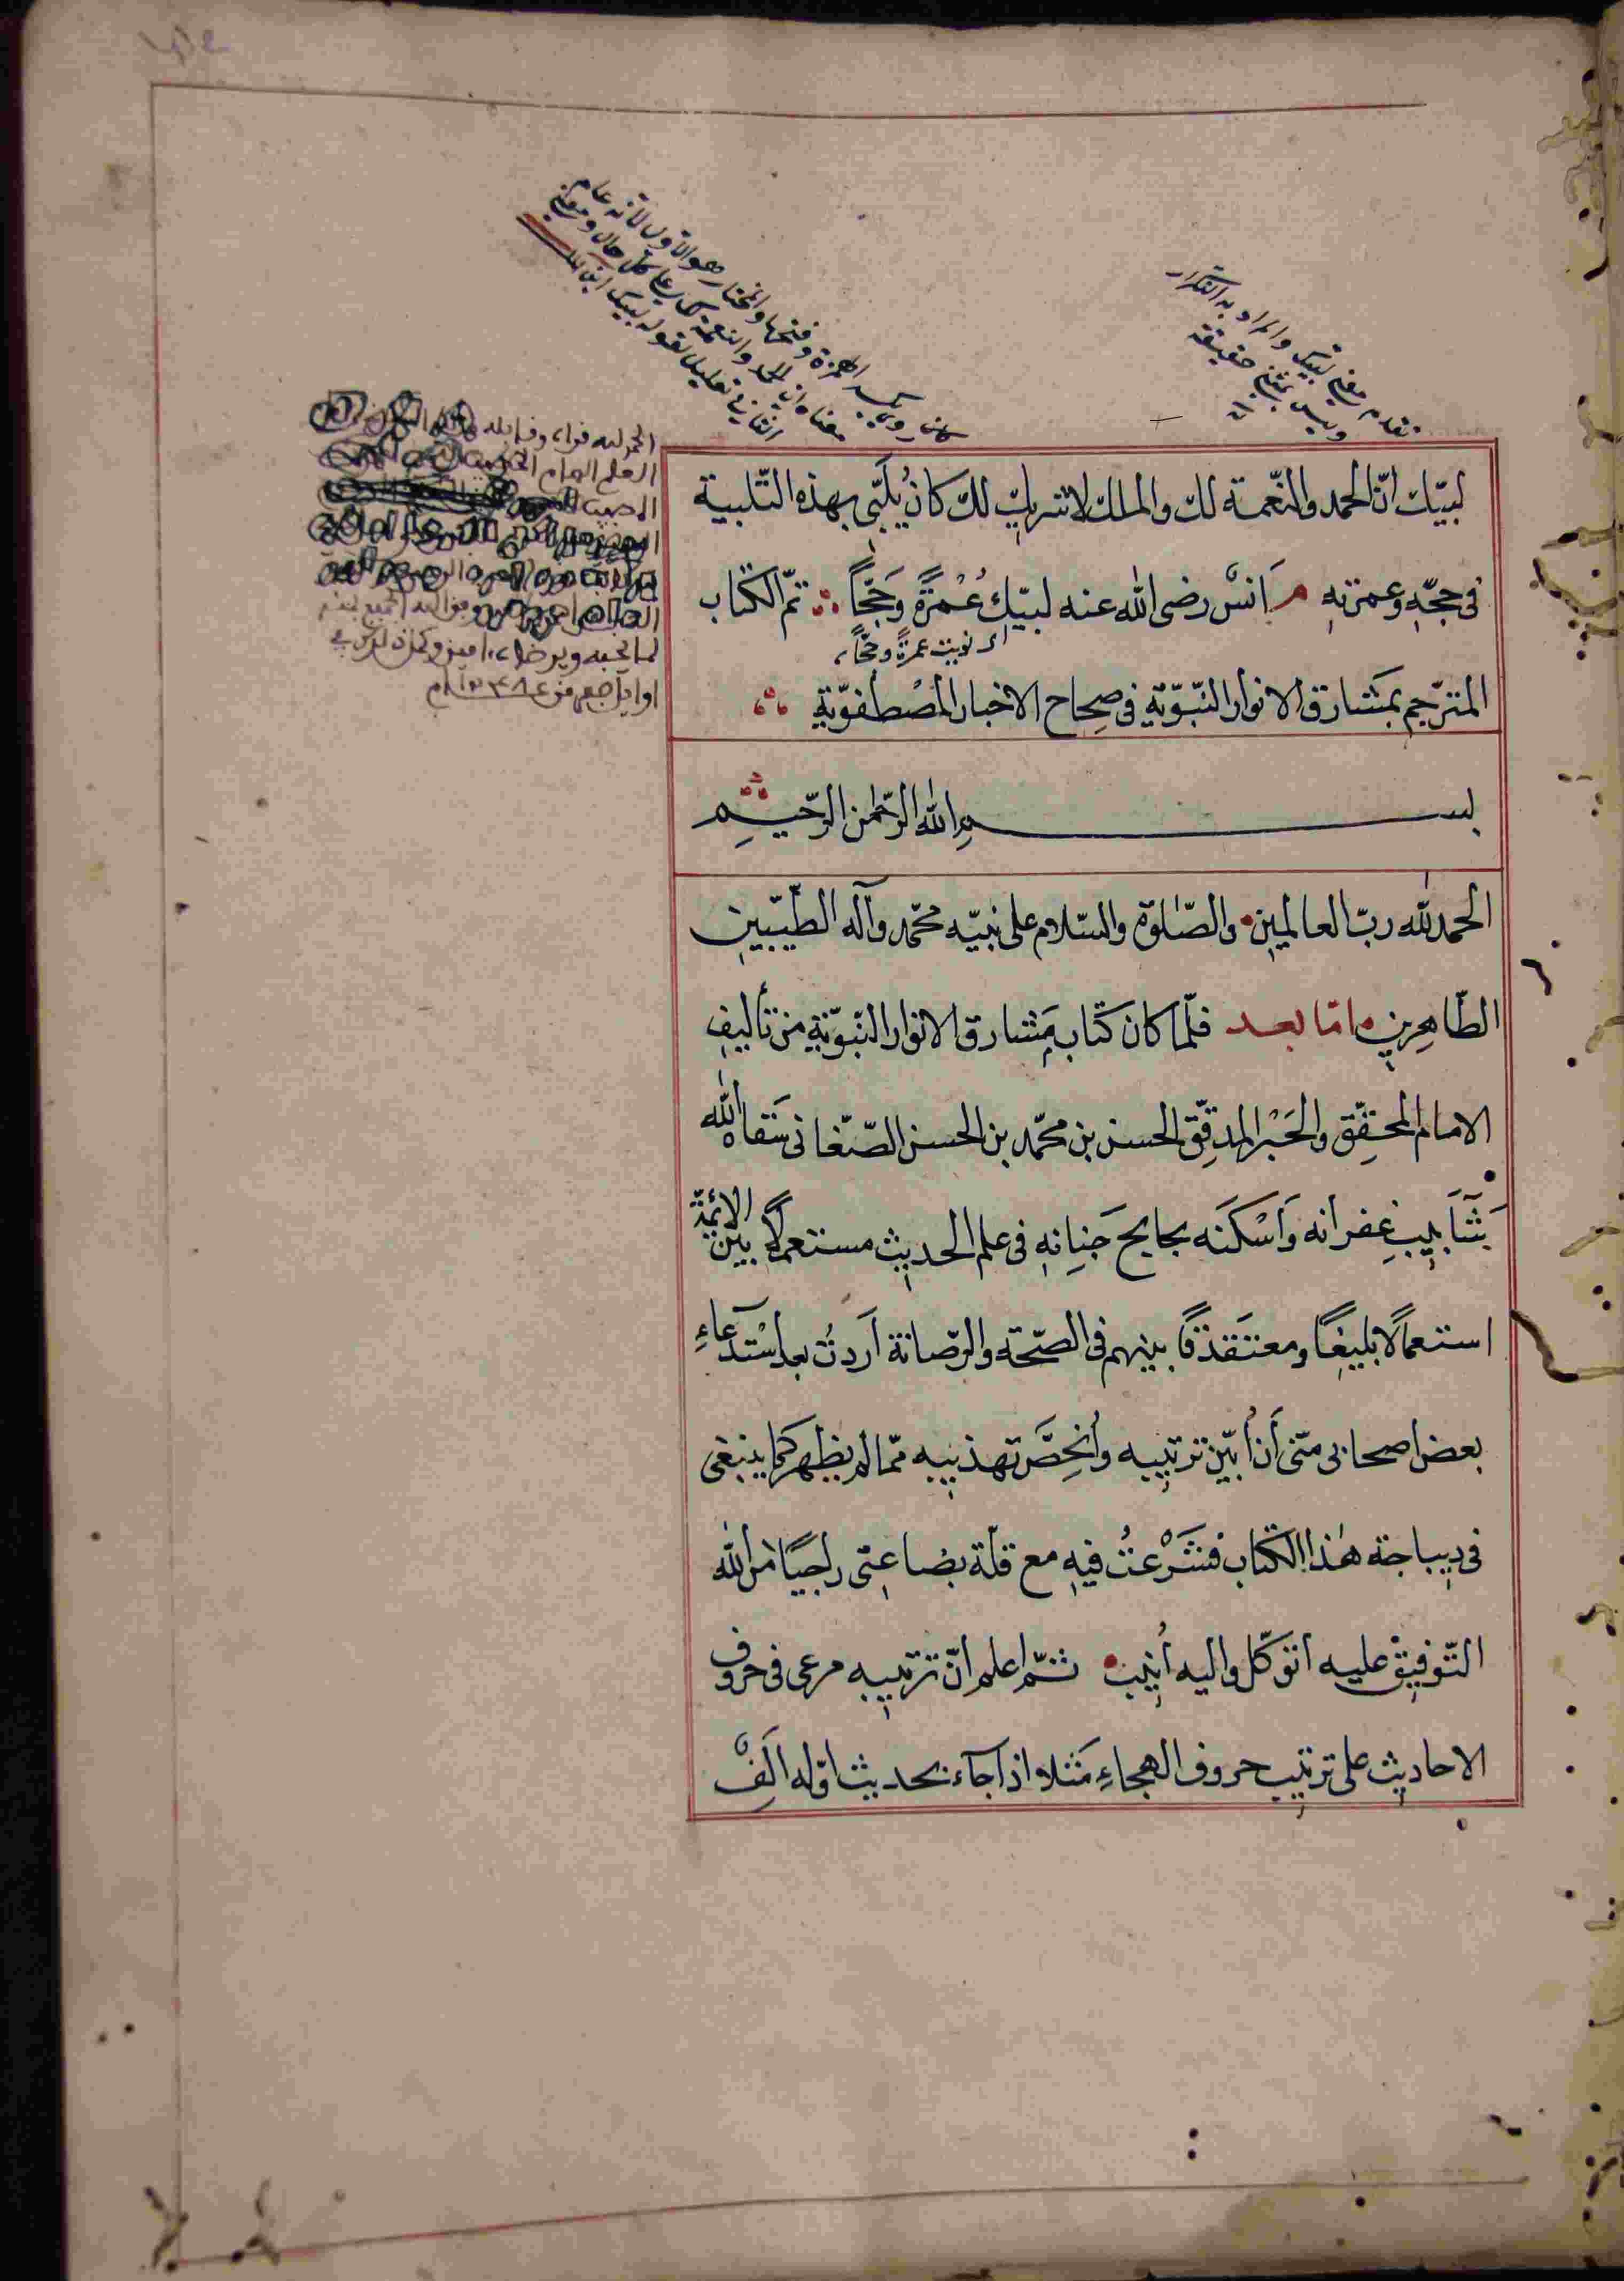 تقدم معنى لبيك والمراد به التكرار
وليس بمثنى حقيقة
روى بكسر الهمزة وفتحها والمختار هو الاول لانه عام
معناه ان الحمد والنعمة لك على كل حال ومعنى
الثاني تعليل لقوله لبيك ابن الملك
لبّيك انّ الحمد والنّعمة لك والملك لا شريك لك كان يُلَبّى بهذه التّلبية
فى حجّهِ وعمرتهِ م اَنسٌ رضى الله عنه لبيّكَ عُمْرَةً وَحَجّاً تمّ الكتاب
اى نويت عمرة وحجّا
المترجم بمَشارق الانوار النّبوّيّة فى صِحاح الاخبار المُصْطفويّة
بسم الله الرّحمن الرّحيم
الحمد لله ربّ العالمين والصّلوة والسّلام على نبيّه محمّد وآله الطّيّبين
الطّاهرين امّا بعد فلمّا كان كتاب مَشارق الانوار النّبويّة من تأليف
الامام المحقِّق والحَبْر المدقِّق الحسن بن محمّد بن الحسن الصّغانى سَقاه الله
شَآبيب غفرانه وَاَسْكَنَه بحابح جَنانه فى علم الحديث مستعملًا بين الائمّة
استعمالًا بليغًا ومعتقَدًا بينهم فى الصّحّة والرّصانة اَردتُ بعد استدعاءِ
بعض اصحابى منّى اَن اُبيّن ترتيبه واُلخِّصَ تهذيبه ممّا لم يظهر كما ينبغى
فى ديباجة هذا الكتاب فشَرَعْتُ فيه مع قلّة بضاعتى راجيًا من الله
التّوفيق عليه اتوكّل واليه اُنيب ثمّ اعلم انّ ترتيبه مرعى فى حروف
الاحاديث على ترتيب حروف الهجاءِ مَثلا اذا جآء بحديث اوّله اَلِفٌ
الحمد لله قراءة وقابله
العلم الهمام
لما يحبه ويرضاه امين وكان ذلك في